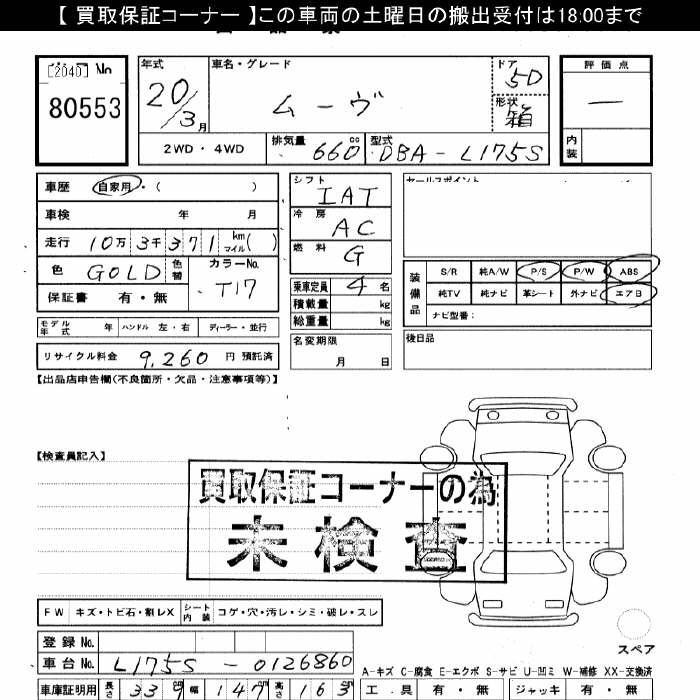 【 買取保証コーナー 】この車両の土曜日の搬出受付は18:00まで
[2040] No
80553
年式
20/3月
車名・グレード
ムーヴ
ドア
5D
形状
箱
評価点
—
内装
2WD・4WD
排気量
660 cc
型式
DBA-L175S
車歴 自家用・( )
車検 年 月
走行 10万3千371 km マイル( )
色 GOLD 色替 カラーNo. T17
保証書 有・無
モデル年式 年 ハンドル 左・右 ディーラー・並行
リサイクル料金 9,260 円 預託済
シフト IAT
冷房 AC
燃料 G
乗車定員 4 名
積載量 kg
総重量 kg
名変期限
月 日
セールスポイント
装備品
S/R 純A/W P/S P/W ABS
純TV 純ナビ 革シート 外ナビ エアB
ナビ型番:
後日品
【出品店申告欄(不良箇所・欠品・注意事項等)】
【検査員記入】
買取保証コーナーの為
未検査
FW キズ・トビ石・割レX シート内装 コゲ・穴・汚レ・シミ・破レ・スレ
スペア
登録 No.
車台 No. L175S-0126860
車庫証明用 長さ 339 幅 147 高さ 163
A-キズ C-腐食 E-エクボ S-サビ U-凹ミ W-補修 XX-交換済
工具 有・無 ジャッキ 有・無